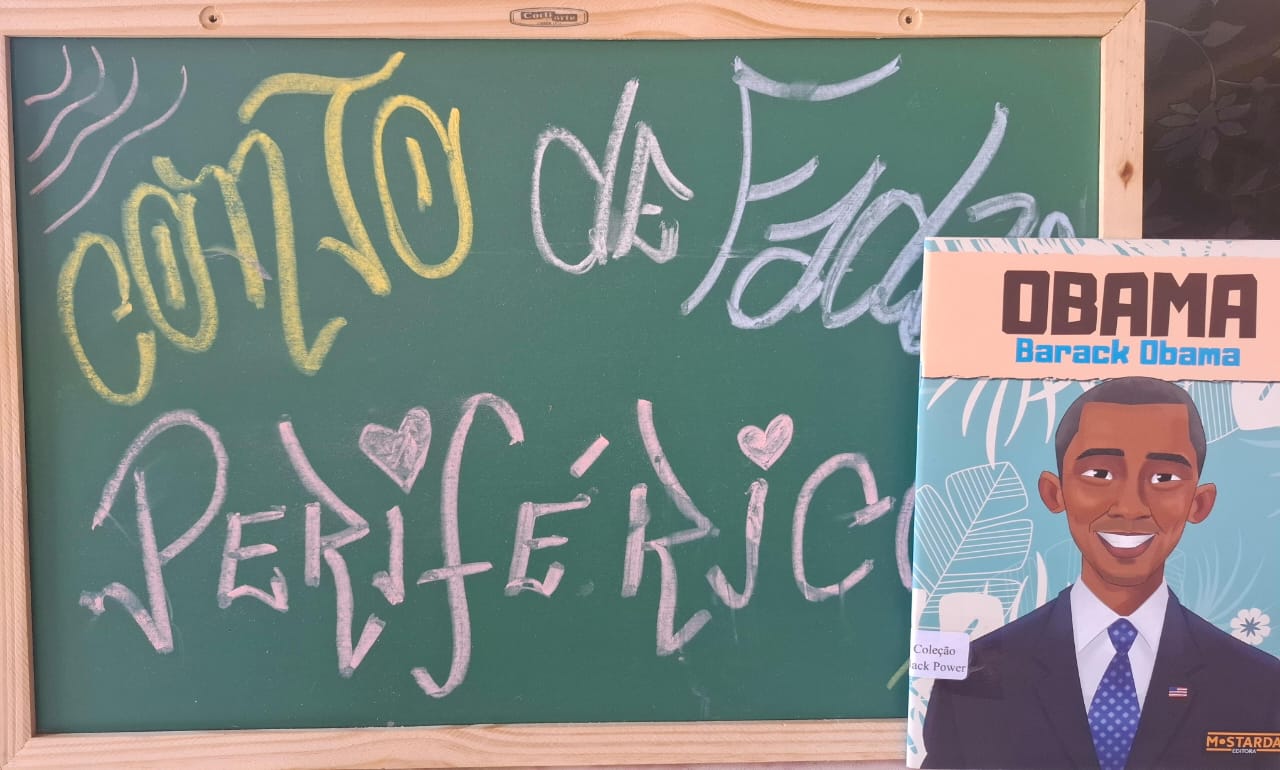 Corti
arte
CONTO de Fadas
PERIFÉRICO
OBAMA
Barack Obama
Coleção
ack Power
MOSTARDA
EDITORA